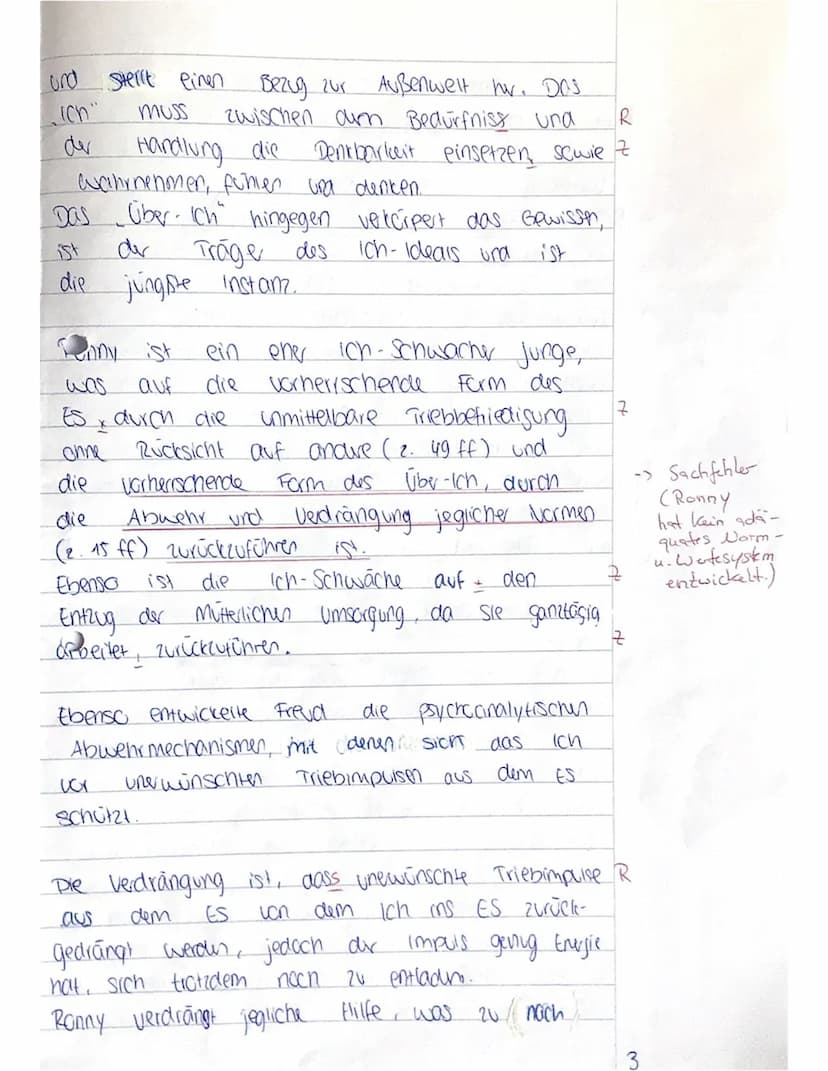 und stellt einen Bezug zur Außenwelt her. Das
„Ich" muss zwischen dem Bedürfniss und R
der Handlung die Denkbarkeit einsetzen, sowie Z
wahrnehmen, fühlen und denken.
Das „Über-Ich" hingegen verkörpert das Gewissen,
ist der Träger des Ich-Ideals und ist
die jüngste Instanz.
Ronny ist ein eher Ich-Schwacher Junge,
was auf die vorherrschende Form des
ES, durch die unmittelbare Triebbefriedigung Z
ohne Rücksicht auf andere (Z. 49 ff) und
die vorherrschende Form des Über-Ich, durch
die Abwehr und Verdrängung jeglicher Normen
(Z. 15 ff) zurückzuführen ist.
-> Sachfehler
(Ronny
hat kein adä-
quates Norm-
u. Wertesystem
entwickelt.)
Ebenso ist die Ich-Schwäche auf den Z
Entzug der Mütterlichen Umsorgung, da sie ganztägig
arbeitet, zurückzuführen. Z
Ebenso entwickelte Freud die psychoanalytischen
Abwehrmechanismen, mit denen sich das Ich
vor unerwünschten Triebimpulsen aus dem ES
schützt.
Die Verdrängung ist, dass unerwünschte Triebimpulse R
aus dem ES von dem Ich ins ES zurück-
gedrängt werden, jedoch der Impuls genug Energie
hat, sich trotzdem noch zu entladen.
Ronny verdrängt jegliche Hilfe, was zu (nach)
3